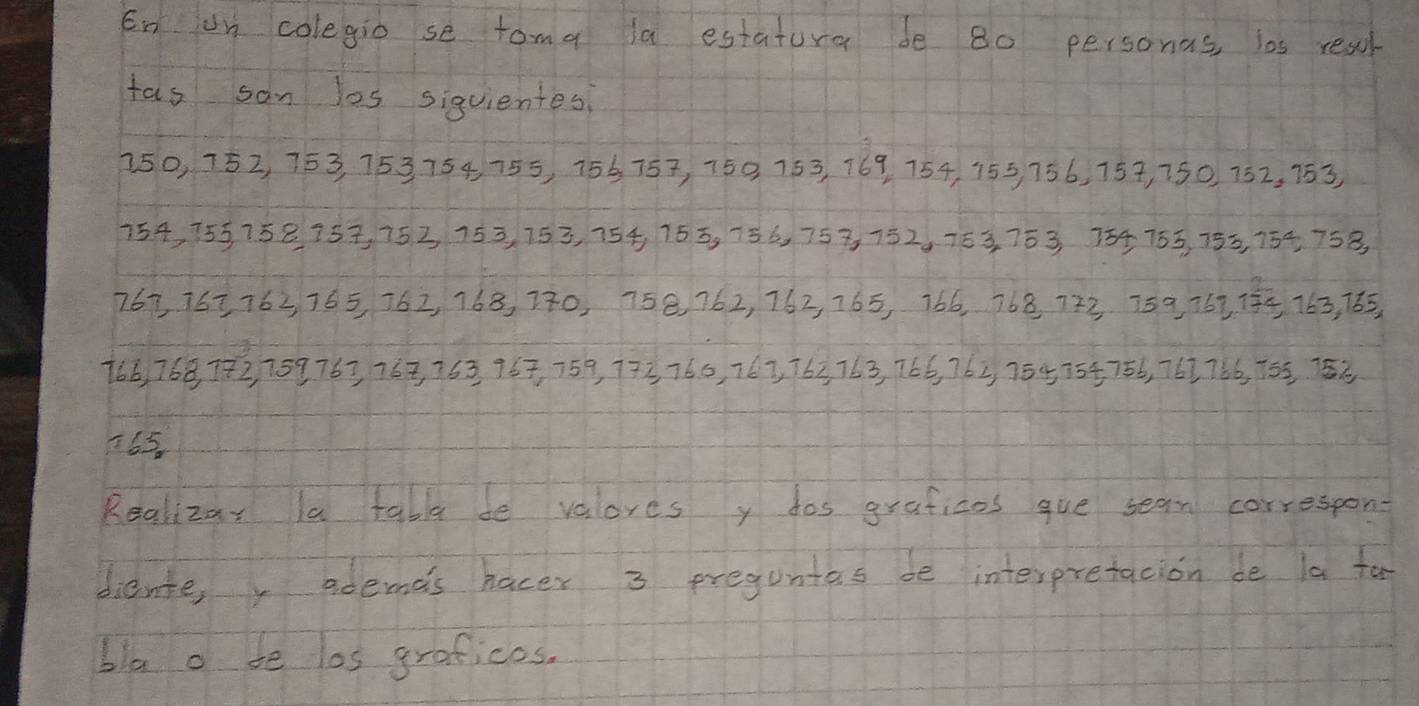 En un colegio se toma la estatura de 80 personas, los resul
tas son los siguientes:
150, 152, 153, 153, 154, 155, 156, 157, 150, 153, 169, 154, 155, 156, 157, 150, 152, 153,
154, 155, 158, 157, 152, 153, 153, 154, 155, 156, 157, 152, 153, 153, 154, 155, 153, 154, 158,
161, 161, 162, 165, 162, 168, 170, 158, 162, 162, 165, 166, 168, 172, 159, 161, 163, 165,
166, 168, 172, 159, 161, 167, 163, 167, 159, 172, 160, 161, 162, 163, 166, 162, 154, 154, 156, 161, 166, 155, 152,
165.
Realizar la tabla de valores y dos graficos que sean correspon-
diente, y además hacer 3 preguntas de interpretación de la ta
bla o de los graficos.